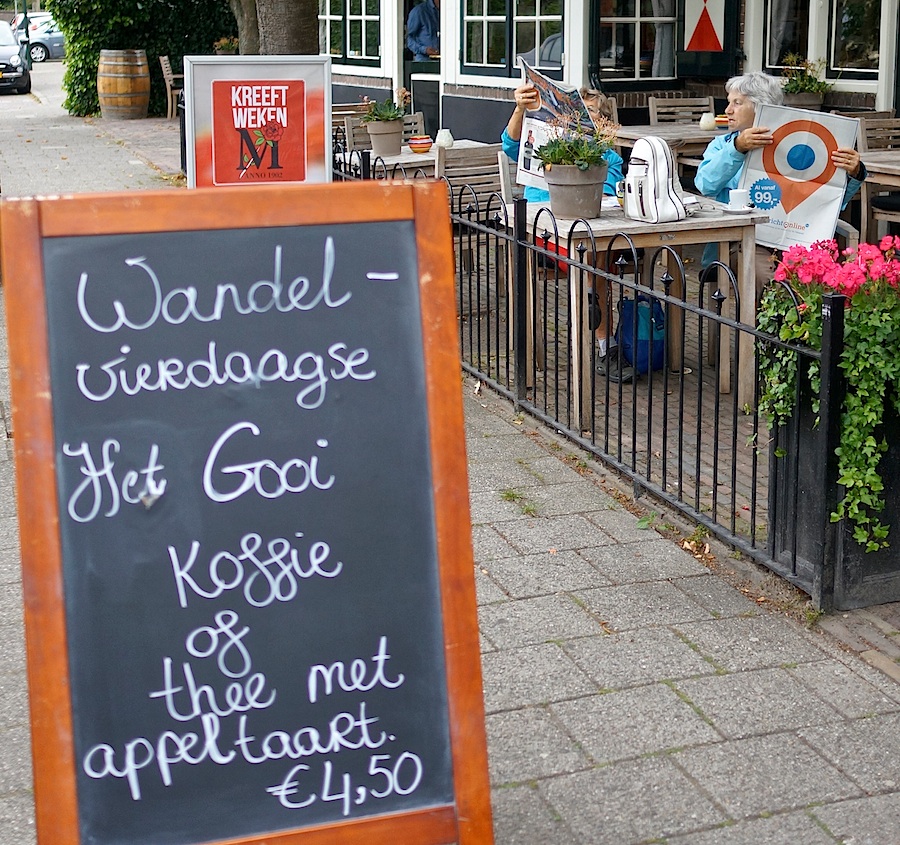 KREEFT
WEKEN
M
ANNO 1902
Wandel-
vierdaagse
Het Gooi
Koffie
of
thee met
appeltaart.
€4,50
Al vanaf
99,-